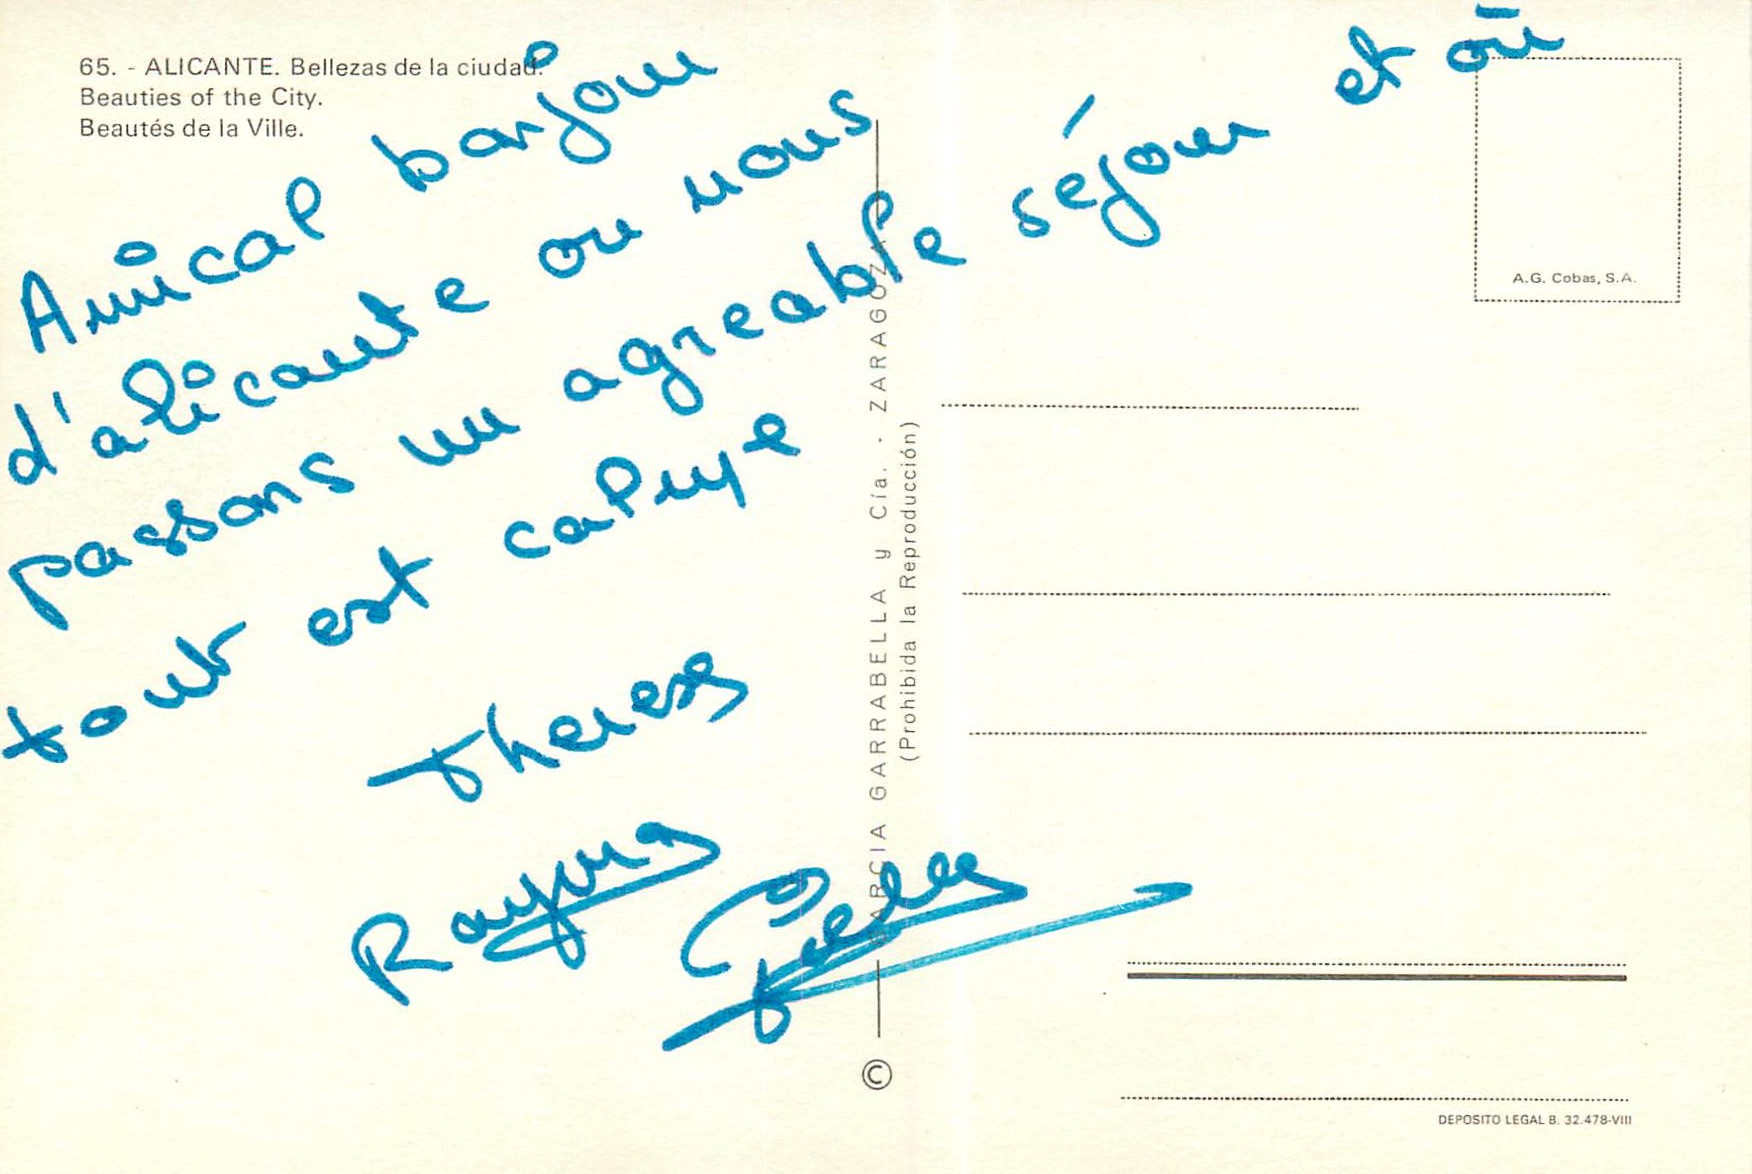 65. - ALICANTE. Bellezas de la ciudad.
Beauties of the City.
Beautés de la Ville.
Amical bonjour
d'alicante ou nous
passons un agreable séjour et où
tout est calme
Therese
Raymond
A.G. Cobas, S.A.
GARCIA GARRABELLA y Cía. - ZARAGOZA
(Prohibida la Reproducción)
©
DEPOSITO LEGAL B. 32.478-VIII